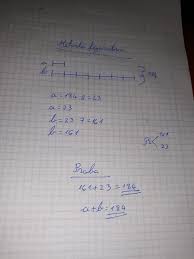 Metoda figurativă
a
b
184
a=184:8=23
a=23
b=23·7=161
b=161
23
Proba
161+23=184
a+b=184